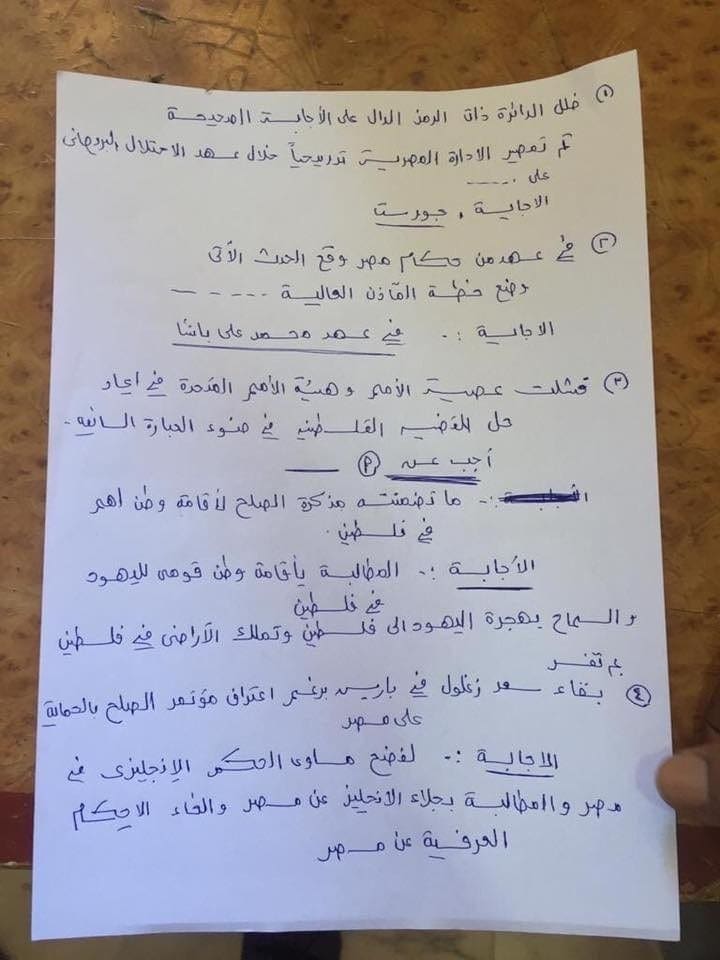 ١) ظلل الدائرة ذات الرمز الدال على الأجابة الصحيحة
تم تمصير الادارة المصرية تدريجياً خلال عهد الاحتلال البريطانى
على .....
الاجابة . جورست
٢) في عهد من حكام مصر وقع الحدث الآتى
وضع خطة المآذن العالية -----
الاجابة :- في عهد محمد على باشا
٣) فشلت عصبة الأمم وهيئة الأمم المتحدة في ايجاد
حل للقضيه الفلسطينيه في ضوء العبارة السابقه -
أجب عن (P) ——
:- ما تضمنته مذكرة الصلح لأقامة وطن لهم
في فلسطين .
الأجابة :- المطالبة بأقامة وطن قومى لليهود
في فلسطين
والسماح بهجرة اليهود الى فلسطين وتملك الآراضى في فلسطين
بم تفسر
٤) بقاء سعد زغلول في باريس برغم اعتراف مؤتمر الصلح بالحماية
على مصر
الاجابة :- لفضح مساوى الحكم الإنجليزى في
مصر والمطالبة بجلاء الانجليز عن مصر والغاء الاحكام
العرفية عن مصر